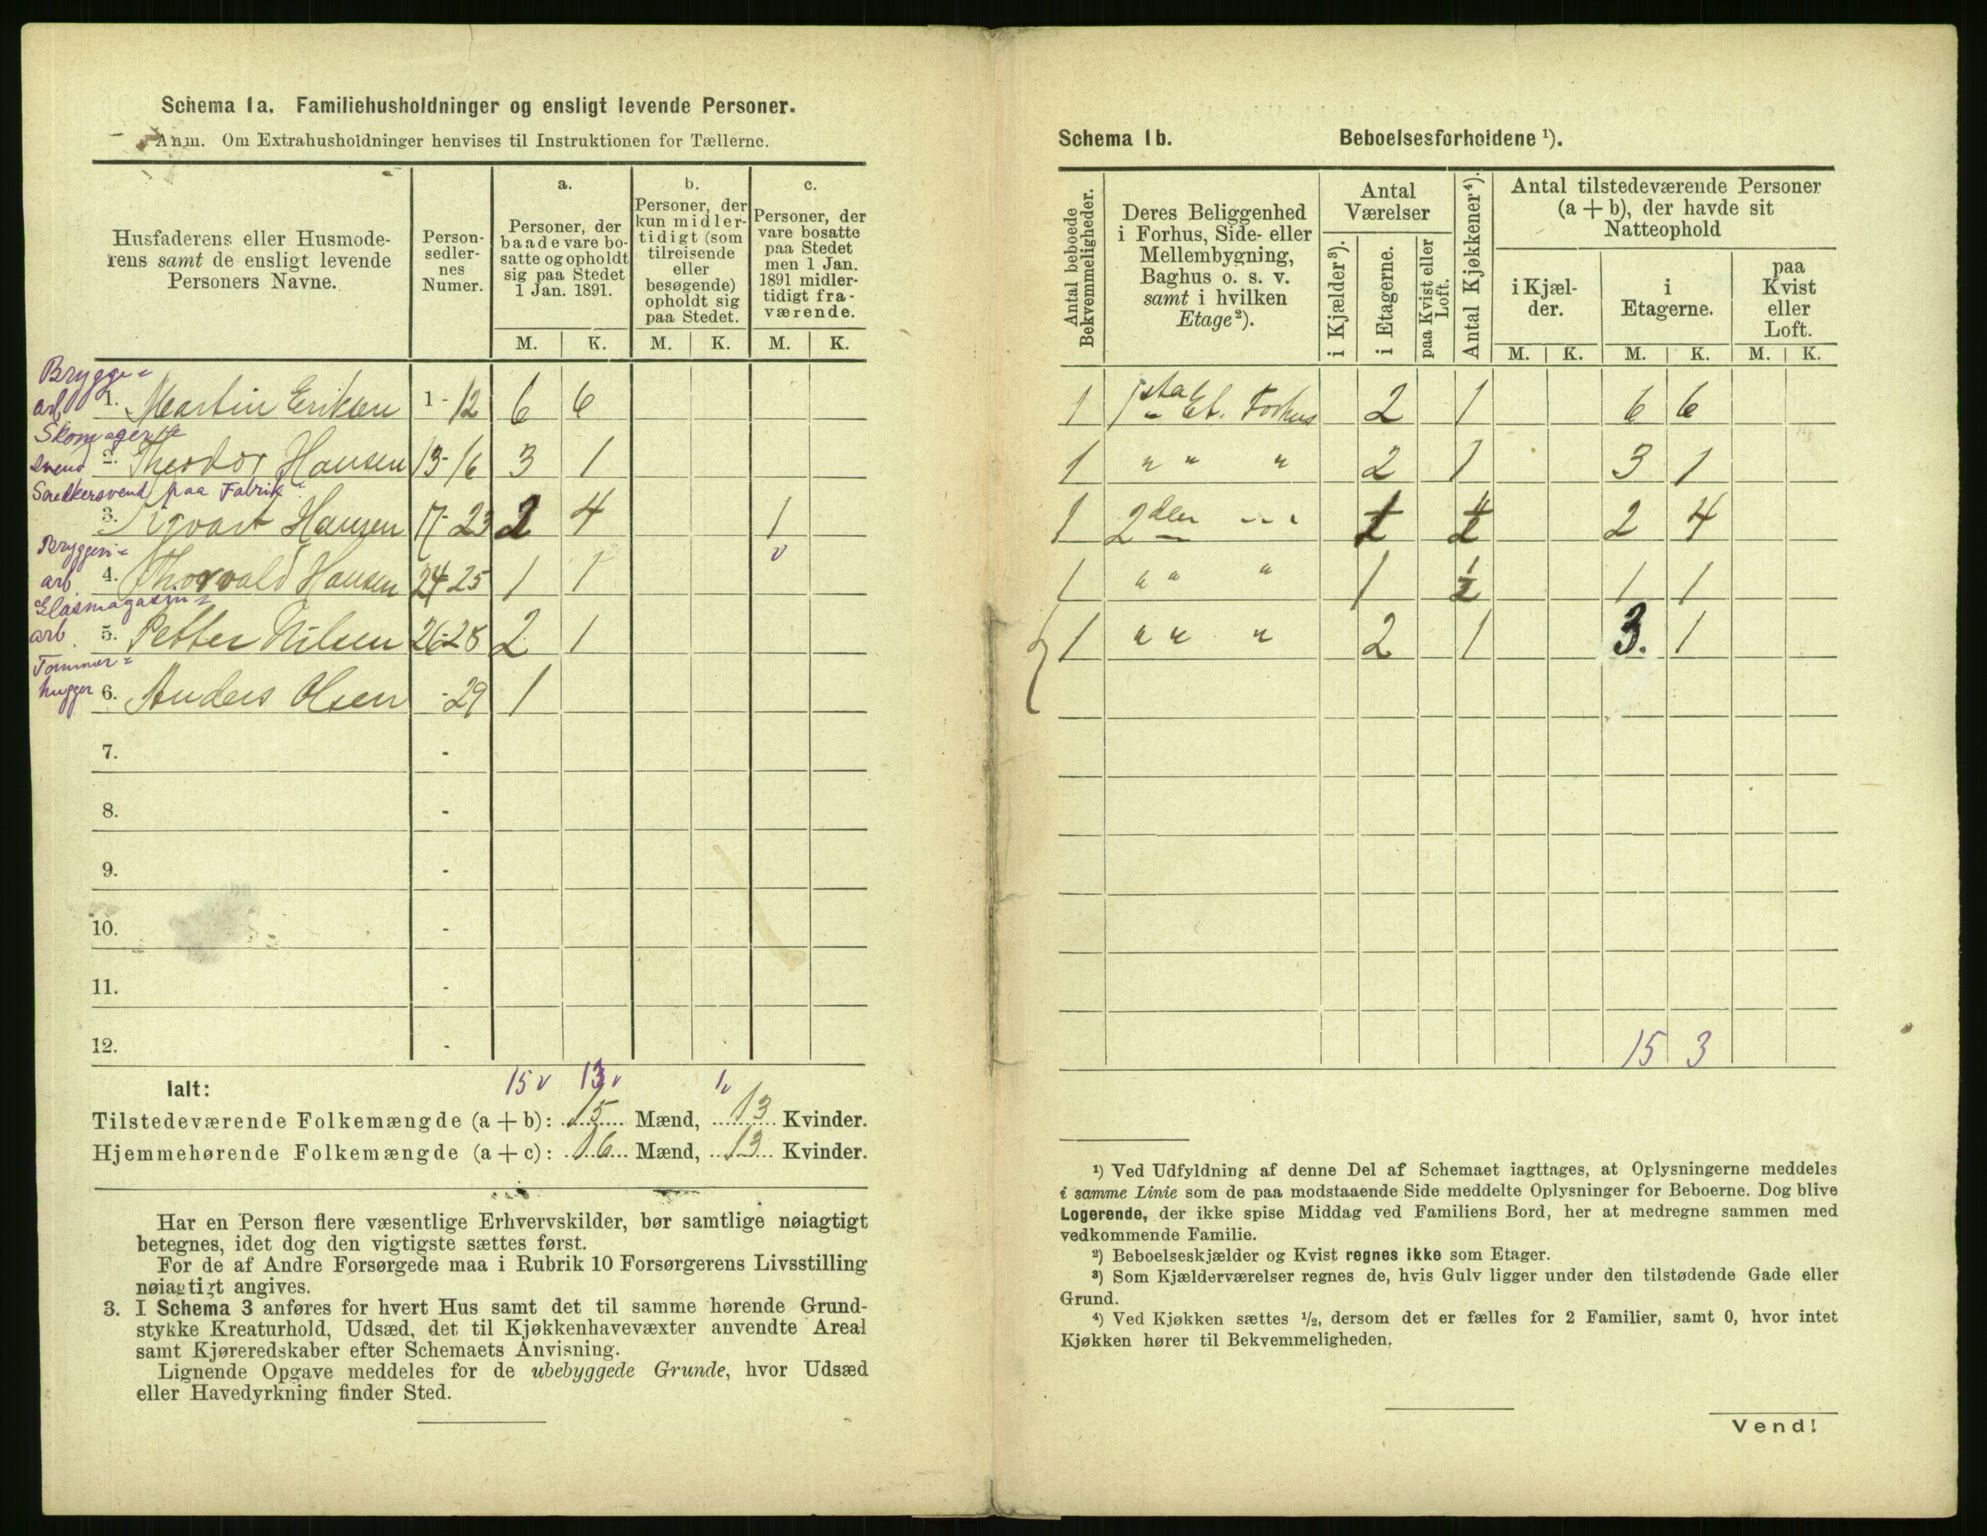 Schema 1a. Familiehusholdninger og ensligt levende Personer.
Anm. Om Extrahusholdninger henvises til Instruktionen for Tællerne.
Husfaderens eller Husmoderens samt de ensligt levende Personers Navne.
Personsedlernes Numer.
a.
Personer, der baade vare bosatte og opholdt sig paa Stedet 1 Jan. 1891.
b.
Personer, der kun midlertidigt (som tilreisende eller besøgende) opholdt sig paa Stedet.
c.
Personer, der vare bosatte paa Stedet men 1 Jan. 1891 midlertidigt fraværende.
M. K. M. K. M. K.
Brygge=
arb 1. Martin Eriksen 1-12 6 6
Skomager=
svend 2. Theodor Hansen 13-16 3 1
Snedkersvend paa Fabrik
3. Sigvart Hansen 17-23 2 4 1
Bryggeri=
arb. 4. Thorvald Hansen 24-25 1 1 v
Glasmagasin=
arb. 5. Petter Nilsen 26-28 2 1
Tømmer=
hugger 6. Anders Olsen -29 1
7. -
8. -
9. -
10. -
11. -
12. -
Ialt: 15 v 13 v 1 v
Tilstedeværende Folkemængde (a + b): 15 Mænd, 13 Kvinder.
Hjemmehørende Folkemængde (a + c): 16 Mænd, 13 Kvinder.
Har en Person flere væsentlige Erhvervskilder, bør samtlige nøiagtigt
betegnes, idet dog den vigtigste sættes først.
For de af Andre Forsørgede maa i Rubrik 10 Forsørgerens Livsstilling
nøiagtigt angives.
3. I Schema 3 anføres for hvert Hus samt det til samme hørende Grund-
stykke Kreaturhold, Udsæd, det til Kjøkkenhavevæxter anvendte Areal
samt Kjøreredskaber efter Schemaets Anvisning.
Lignende Opgave meddeles for de ubebyggede Grunde, hvor Udsæd
eller Havedyrkning finder Sted.
Schema 1b. Beboelsesforholdene ¹).
Antal beboede Bekvemmeligheder.
Deres Beliggenhed i Forhus, Side- eller Mellembygning, Baghus o. s. v. samt i hvilken Etage²).
Antal Værelser
i Kjælder³).
i Etagerne.
paa Kvist eller Loft.
Antal Kjøkkener⁴).
Antal tilstedeværende Personer (a + b), der havde sit Natteophold
i Kjælder.
i Etagerne.
paa Kvist eller Loft.
M. K. M. K. M. K.
1 1ste Et. Forhus 2 1 6 6
1 " " " 2 1 3 1
1 2den 1 1/2 2 4
1 " " " 1 1/2 1 1
1 " " " 2 1 3. 1
15 3
¹) Ved Udfyldning af denne Del af Schemaet iagttages, at Oplysningerne meddeles
i samme Linie som de paa modstaaende Side meddelte Oplysninger for Beboerne. Dog blive
Logerende, der ikke spise Middag ved Familiens Bord, her at medregne sammen med
vedkommende Familie.
²) Beboelseskjælder og Kvist regnes ikke som Etager.
³) Som Kjælderværelser regnes de, hvis Gulv ligger under den tilstødende Gade eller
Grund.
⁴) Ved Kjøkken sættes ½, dersom det er fælles for 2 Familier, samt 0, hvor intet
Kjøkken hører til Bekvemmeligheden.
Vend!